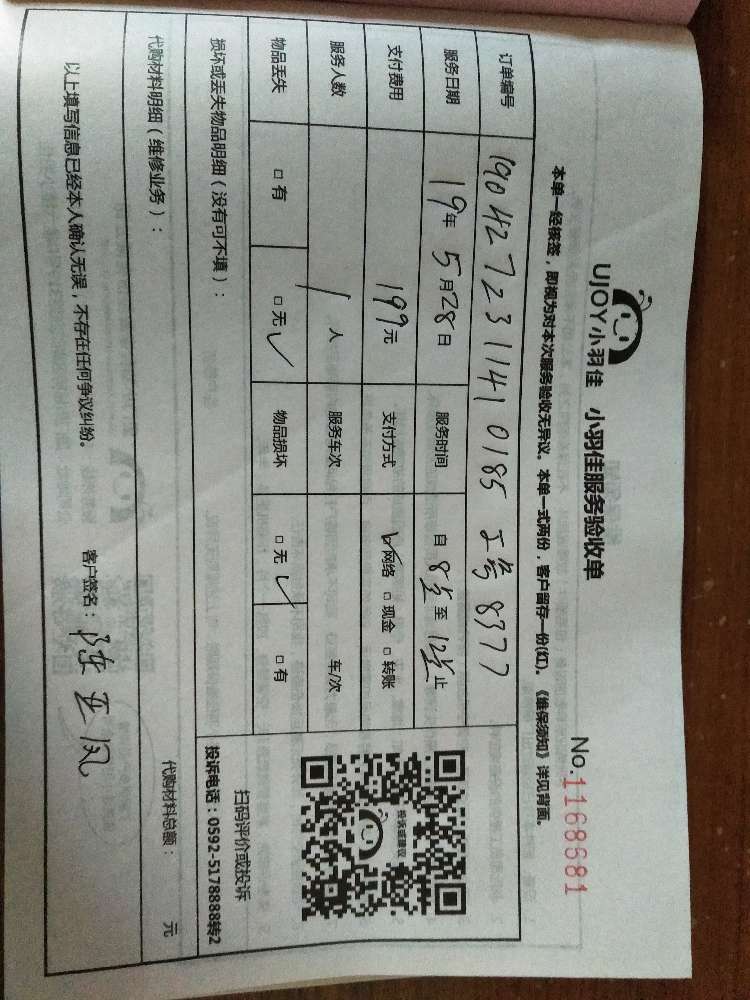 UJOY小羽佳 小羽佳服务验收单
No.1168681
本单一经核签，即视为对本次服务验收无异议。本单一式两份，客户留存一份(红)。《维保须知》详见背面。
订单编号 190427231141 0185 工号8377
服务日期 19年5月28日 服务时间 自8点至12点止
支付费用 199元 支付方式 ☑网络 □现金 □转账
服务人数 1人 服务车次 车/次
物品丢失 □有 □无✓ 物品损坏 □无✓ □有
投诉或建议
扫码评价或投诉
投诉电话：0592-5178888转2
损坏或丢失物品明细（没有可不填）：
代购材料明细（维修业务）： 代购材料总额： 元
以上填写信息已经本人确认无误，不存在任何争议纠纷。 客户签名：陈亚凤